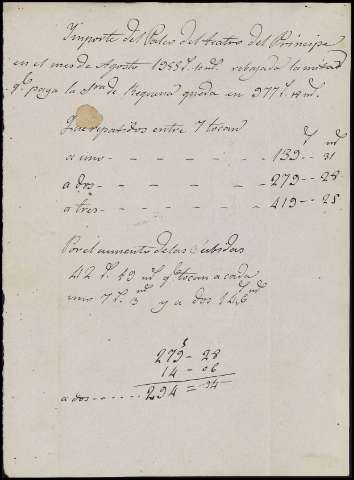 Importe del Palco del teatro del Principe
en el mes de Agosto 1955 r.s 10 m.s rebajada la mitad
q.e paga la S.ra de Requena queda en 977 r.s 22 m.s
Que repartidos entre 7 tocan
r.s m.s
a uno - - - - - - - 139 - 21
a dos - - - - - - - 279 - 28
a tres - - - - - - - 419 - 28
Por el aumento de las subidas
42 r.s 19 m.s q.e tocan a cada
uno 7 r.s 3 m.s y a dos 14 r.s 6 m.s
279 - 28
14 - 06
a dos - - - - - 294 = 34